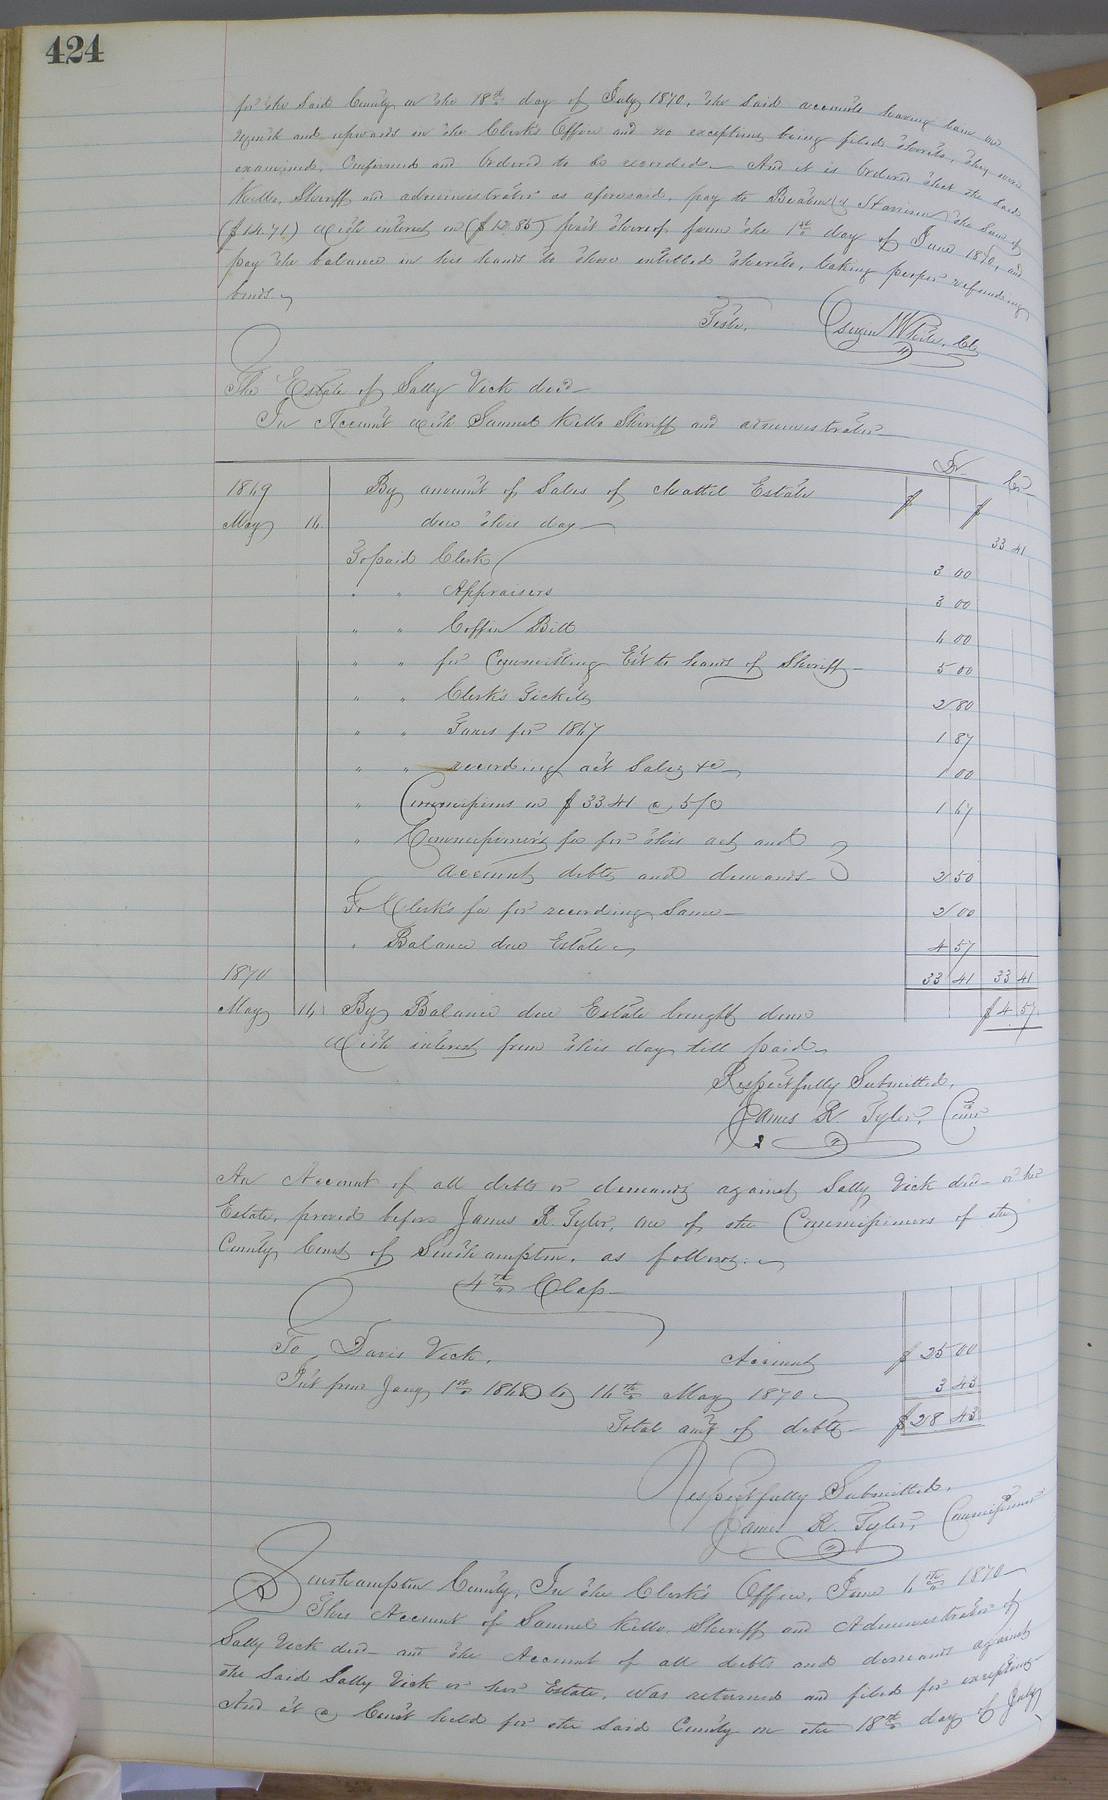 424
for the said County on the 18th day of July 1870, the said accounts having lain one
month and upwards in the Clerk's Office and no exceptions being filed thereto, they were
examined, Confirmed and Ordered to be recorded. And it is Ordered that the said
Kello, Sheriff and administrator as aforesaid, pay to Beaton & Harrison the sum of
($14.71) With interest on ($12.85) part thereof from the 1st day of June 1870, and
pay the balance in his hands to those entitled thereto, taking proper refunding
bonds.
Teste, White, Clk
The Estate of Sally Vick decd
In Account with Samuel Kello Sheriff and administrator
Dr Cr
1869 By amount of Sales of Chattel Estate $ $
May 14 due this day 33 41
To paid Clerk 3 00
" " Appraisers 3 00
" " Coffin Bill 6 00
" " for Committing Est to hands of Sheriff 5 00
" " Clerk's Tickets 2 80
" " Taxes for 1867 1 87
" " recording act Sales &c 1 00
" Commissions on $33.41 @ 5/0 1 67
" Commissioner's fee for this act and
Account debts and demands 2 50
To Clerk's fee for recording Same 2 00
" Balance due Estate 4 57
1870 33 41 33 41
May 14 By Balance due Estate brought down $4 57
With interest from this day till paid
Respectfully Submitted,
James R. Tyler, Comr
An Account of all debts or demands against Sally Vick decd or her
Estate, proved before James R. Tyler, one of the Commissioners of the
County Court of Southampton, as follows:
4th Class
To Davis Vick, Account $ 25 00
Int from Jany 1st 1868 to 14th May 1870 3 43
Total amt of debts $28 43
Respectfully Submitted,
James R. Tyler, Commissioner
Southampton County, In the Clerk's Office, June 6th 1870
This Account of Samuel Kello, Sheriff and Administrator of
Sally Vick decd and the Account of all debts and demands against
the said Sally Vick or her Estate, was returned and filed for exceptions
And at a Court held for the said County on the 18th day of July